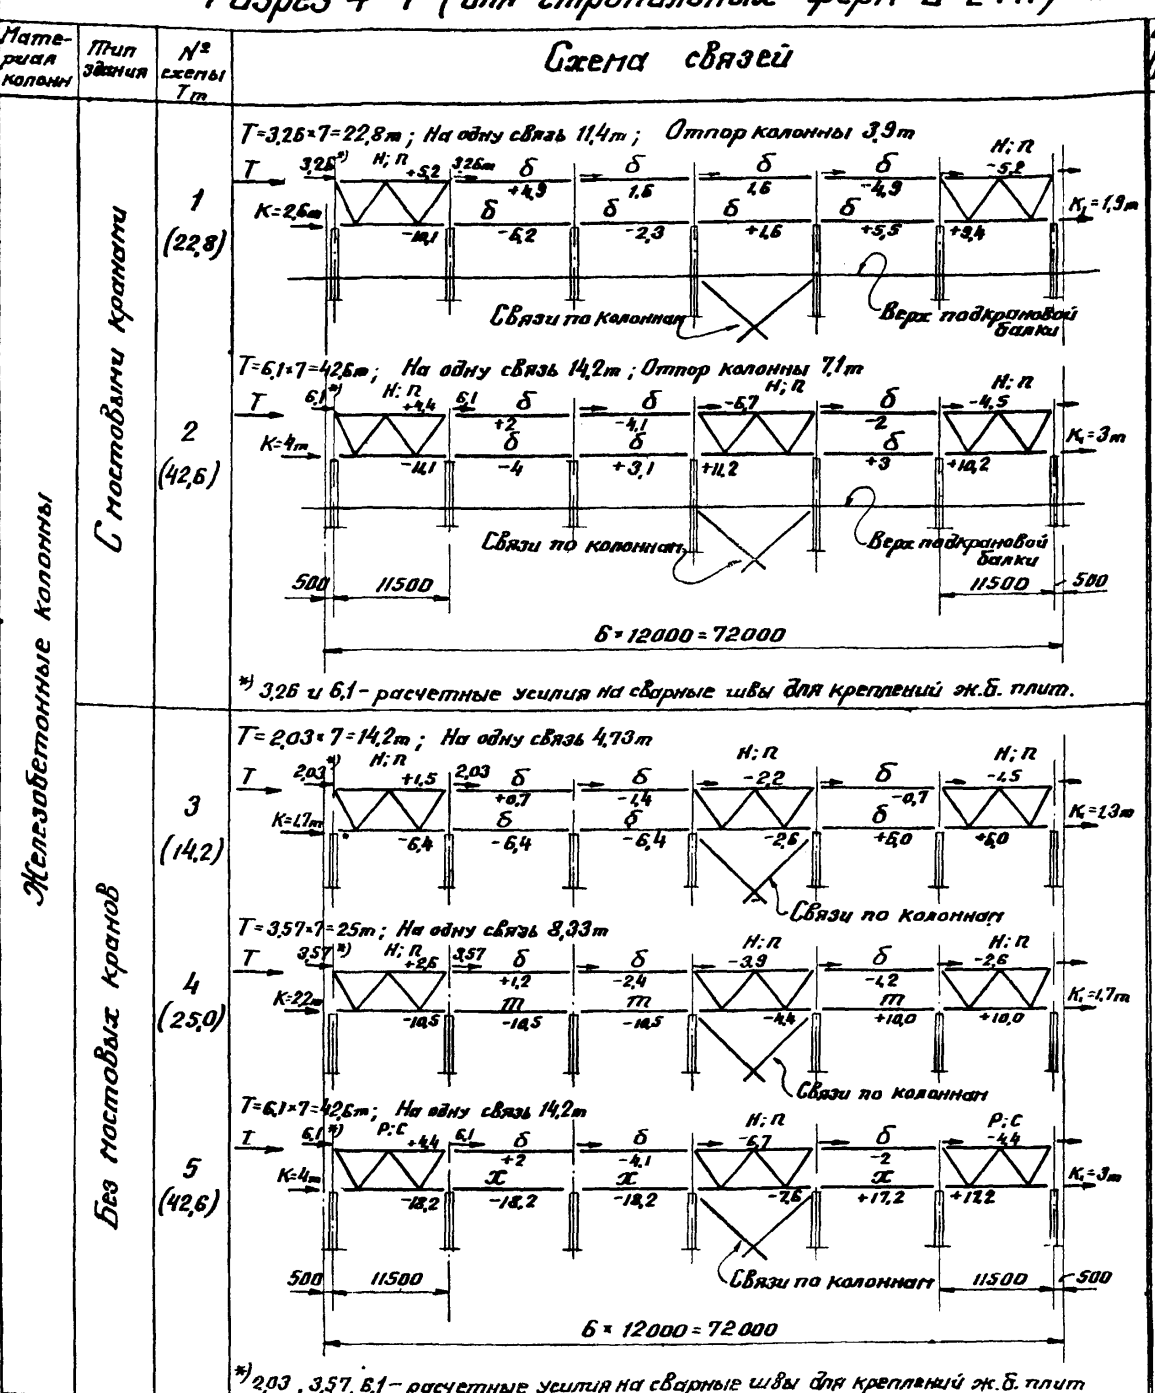 Разрез 4-4 (для стропильных ферм L=24м)
Мате-
риал
колонн
Тип
здания
№
схемы
Тт
Схема связей
Железобетонные колонны
С мостовыми кранами
1
(22,8)
T=3,26×7=22,8т; На одну связь 11,4т; Отпор колонны 3,9т
T 3,26*) Н; П +5,2 3,26т б б б б Н; П -5,2
+4,9 1,6 1,6 -4,9
K=2,6т б б б б K₁=1,9т
-10,1 -6,2 -2,3 +1,6 +5,5 +9,4
Связи по колоннам
Верх подкрановой
балки
2
(42,6)
T=6,1×7=42,6т; На одну связь 14,2т; Отпор колонны 7,1т
T 6,1*) Н; П +4,4 6,1 б б -6,7 Н; П б Н; П -4,5
+2 -4,1 -2
K=4т б б б K₁=3т
-11,1 -4 +3,1 +11,2 +3 +10,2
Связи по колоннам
Верх подкрановой
балки
500 11500 11500 500
6×12000=72000
*) 3,26 и 6,1 - расчетные усилия на сварные швы для креплений ж.б. плит.
Без мостовых кранов
3
(14,2)
T=2,03×7=14,2т; На одну связь 4,73т
T 2,03*) Н; П +1,5 2,03 б б Н; П -2,2 б Н; П -1,5
+0,7 -1,4 -0,7
K=1,7т б б б K₁=1,3т
-6,4 -6,4 -6,4 -2,6 +6,0 +6,0
Связи по колоннам
4
(25,0)
T=3,57×7=25т; На одну связь 8,33т
T 3,57*) Н; П +2,6 3,57 б б Н; П -3,9 б Н; П -2,6
+1,2 -2,4 -1,2
K=2,2т т т т K₁=1,7т
-10,5 -10,5 -10,5 -4,4 +10,0 +10,0
Связи по колоннам
5
(42,6)
T=6,1×7=42,6т; На одну связь 14,2т
T 6,1*) Р; С +4,4 6,1 б б Н; П -6,7 б Р; С -4,4
+2 -4,1 -2
K=4т х х х K₁=3т
-18,2 -18,2 -18,2 -7,6 +17,2 +17,2
Связи по колоннам
500 11500 11500 500
6×12000=72000
*) 2,03, 3,57, 6,1 - расчетные усилия на сварные швы для креплений ж.б. плит